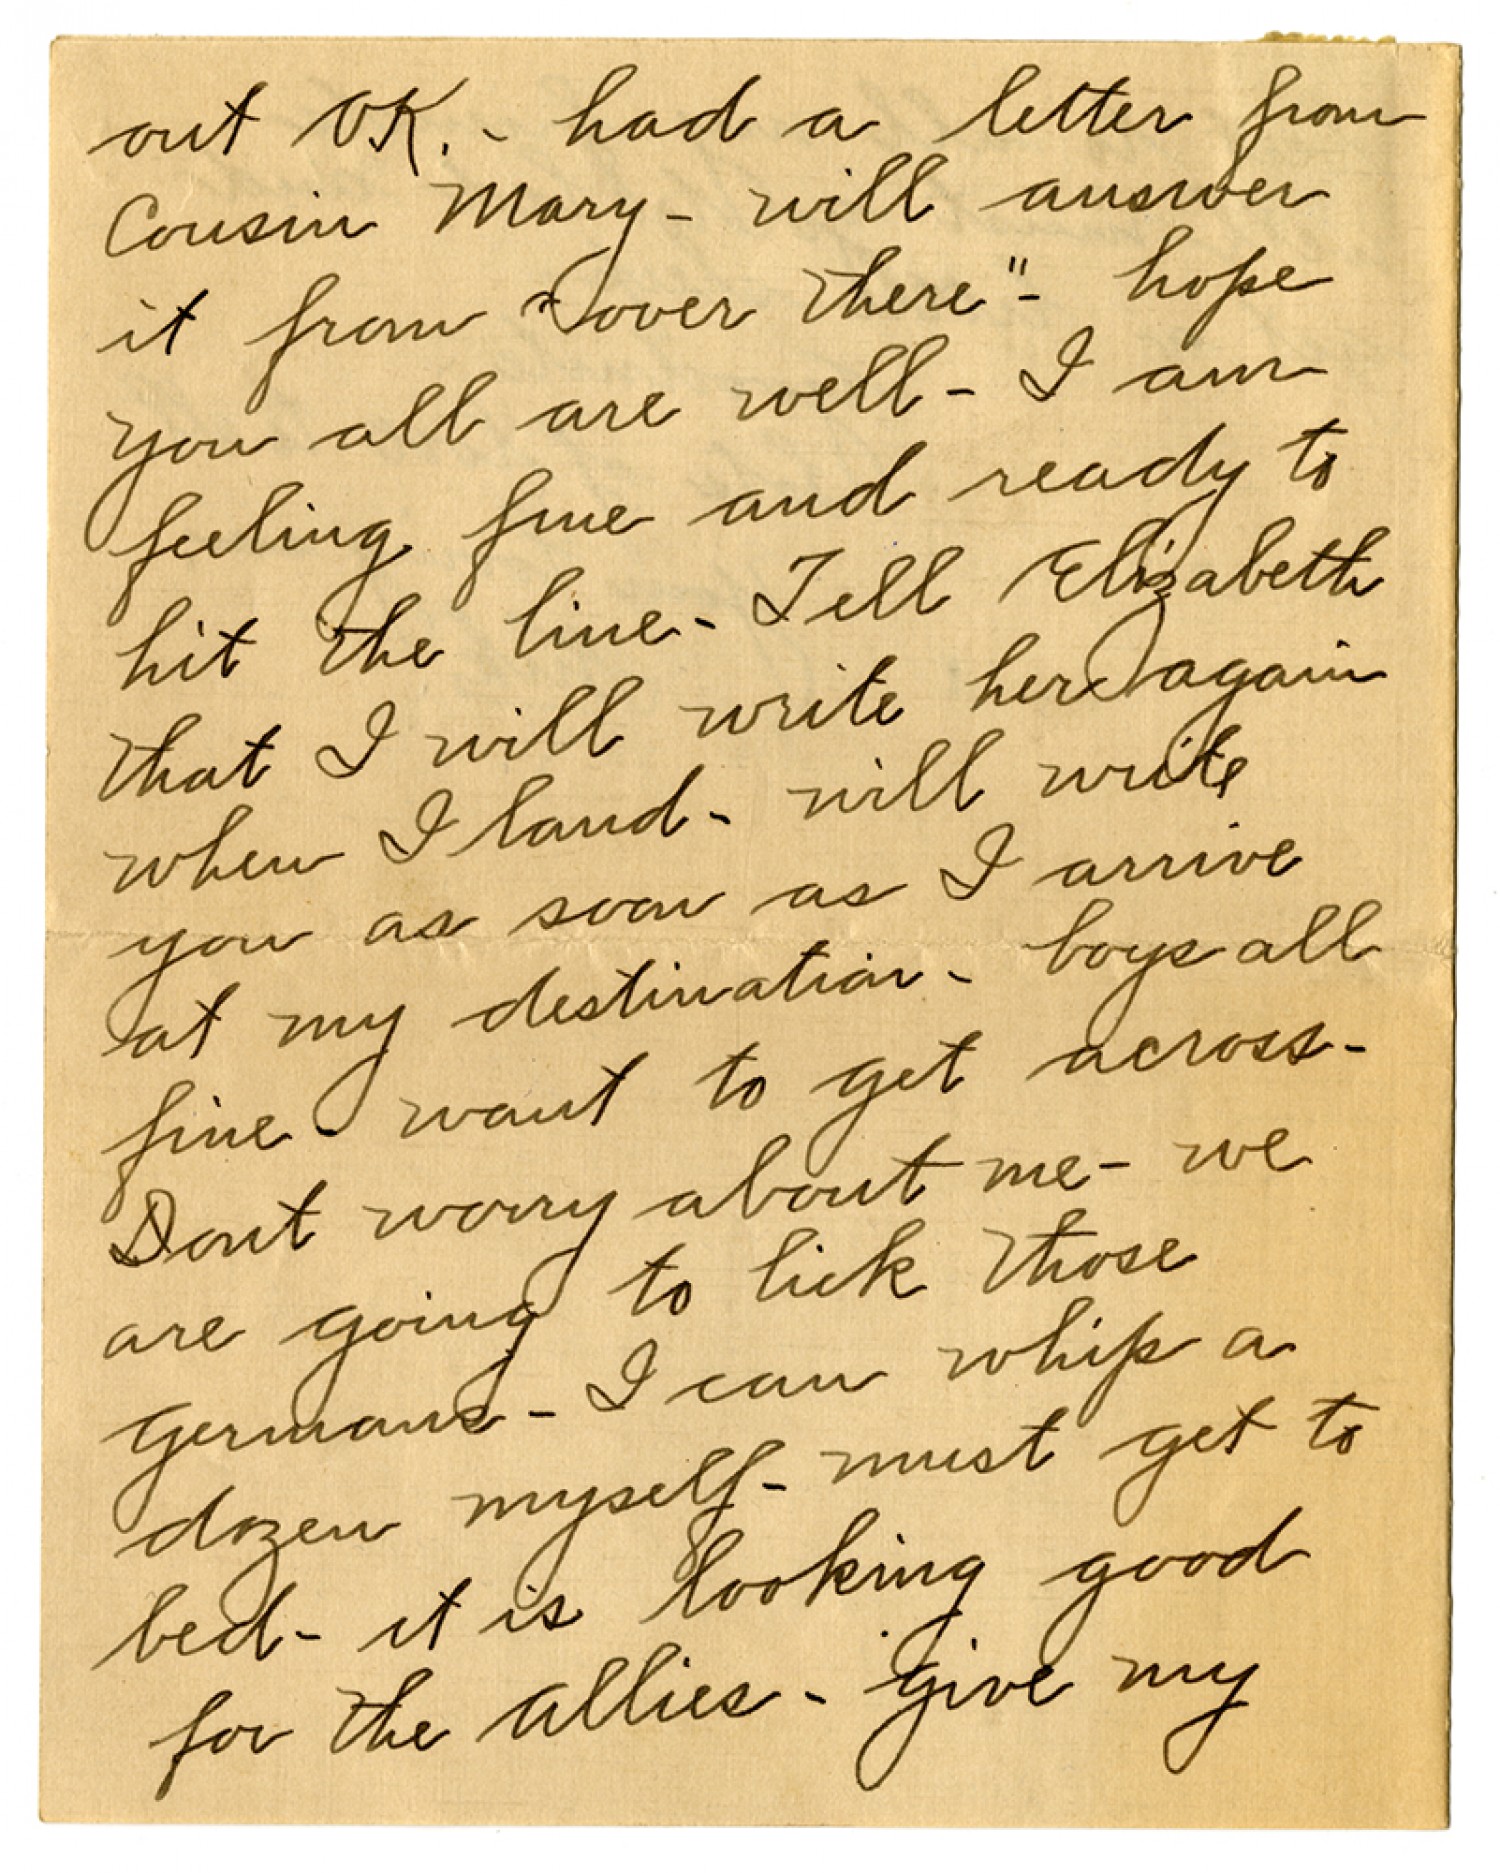 out OK. - had a letter from
Cousin Mary - will answer
it from "over there" - hope
you all are well - I am
feeling fine and ready to
hit the line - Tell Elizabeth
that I will write her again
when I land - will write
you as soon as I arrive
at my destination - boys all
fine - want to get across -
Dont worry about me - we
are going to lick those
Germans - I can whip a
dozen myself - must get to
bed - it is looking good
for the allies - give my